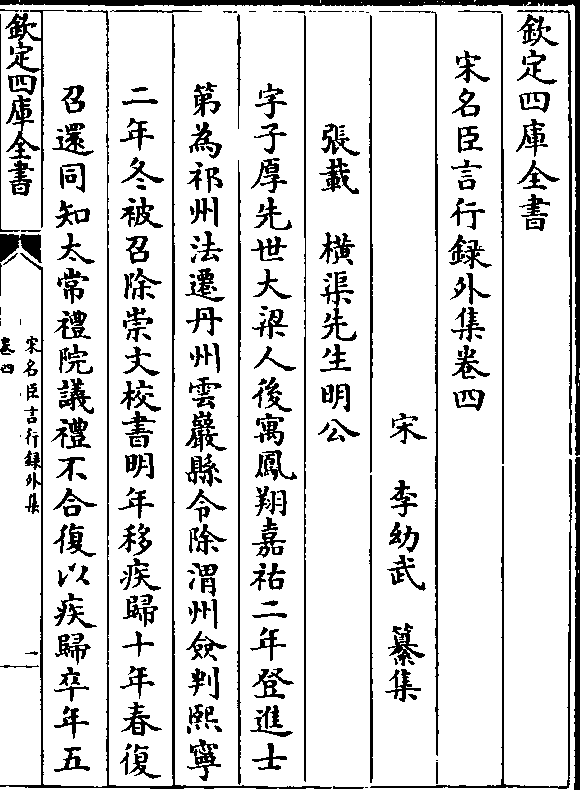 欽定四庫全書
宋名臣言行録外集卷四
宋 李幼武 纂集
張載 橫渠先生明公
字子厚先世大梁人後寓鳳翔嘉祐二年登進士
第為祁州法遷丹州雲巖縣令除渭州僉判熙寧
二年冬被召除崇文校書明年移疾歸十年春復
召還同知太常禮院議禮不合復以疾歸卒年五
欽定四庫全書
宋名臣言行録外集
卷四
一